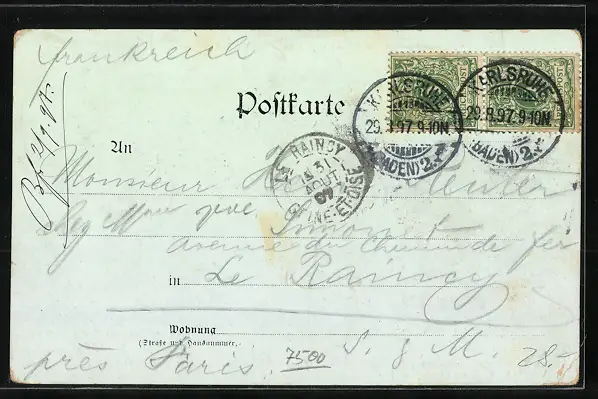 Frankreich
Postkarte
KARLSRUHE
29.8.97.9-10N.
(BADEN) 2.
KARLSRUHE
29.8.97.9-10N.
(BADEN) 2.
An
LE RAINCY
31
AOUT
97
SNE-ET-OISE
Monsieur
Simonet
avenue du Chemin de fer
in Le Raincy
Wohnung
(Straße und Hausnummer.)
près Paris. 7500 S. & M. 28.-